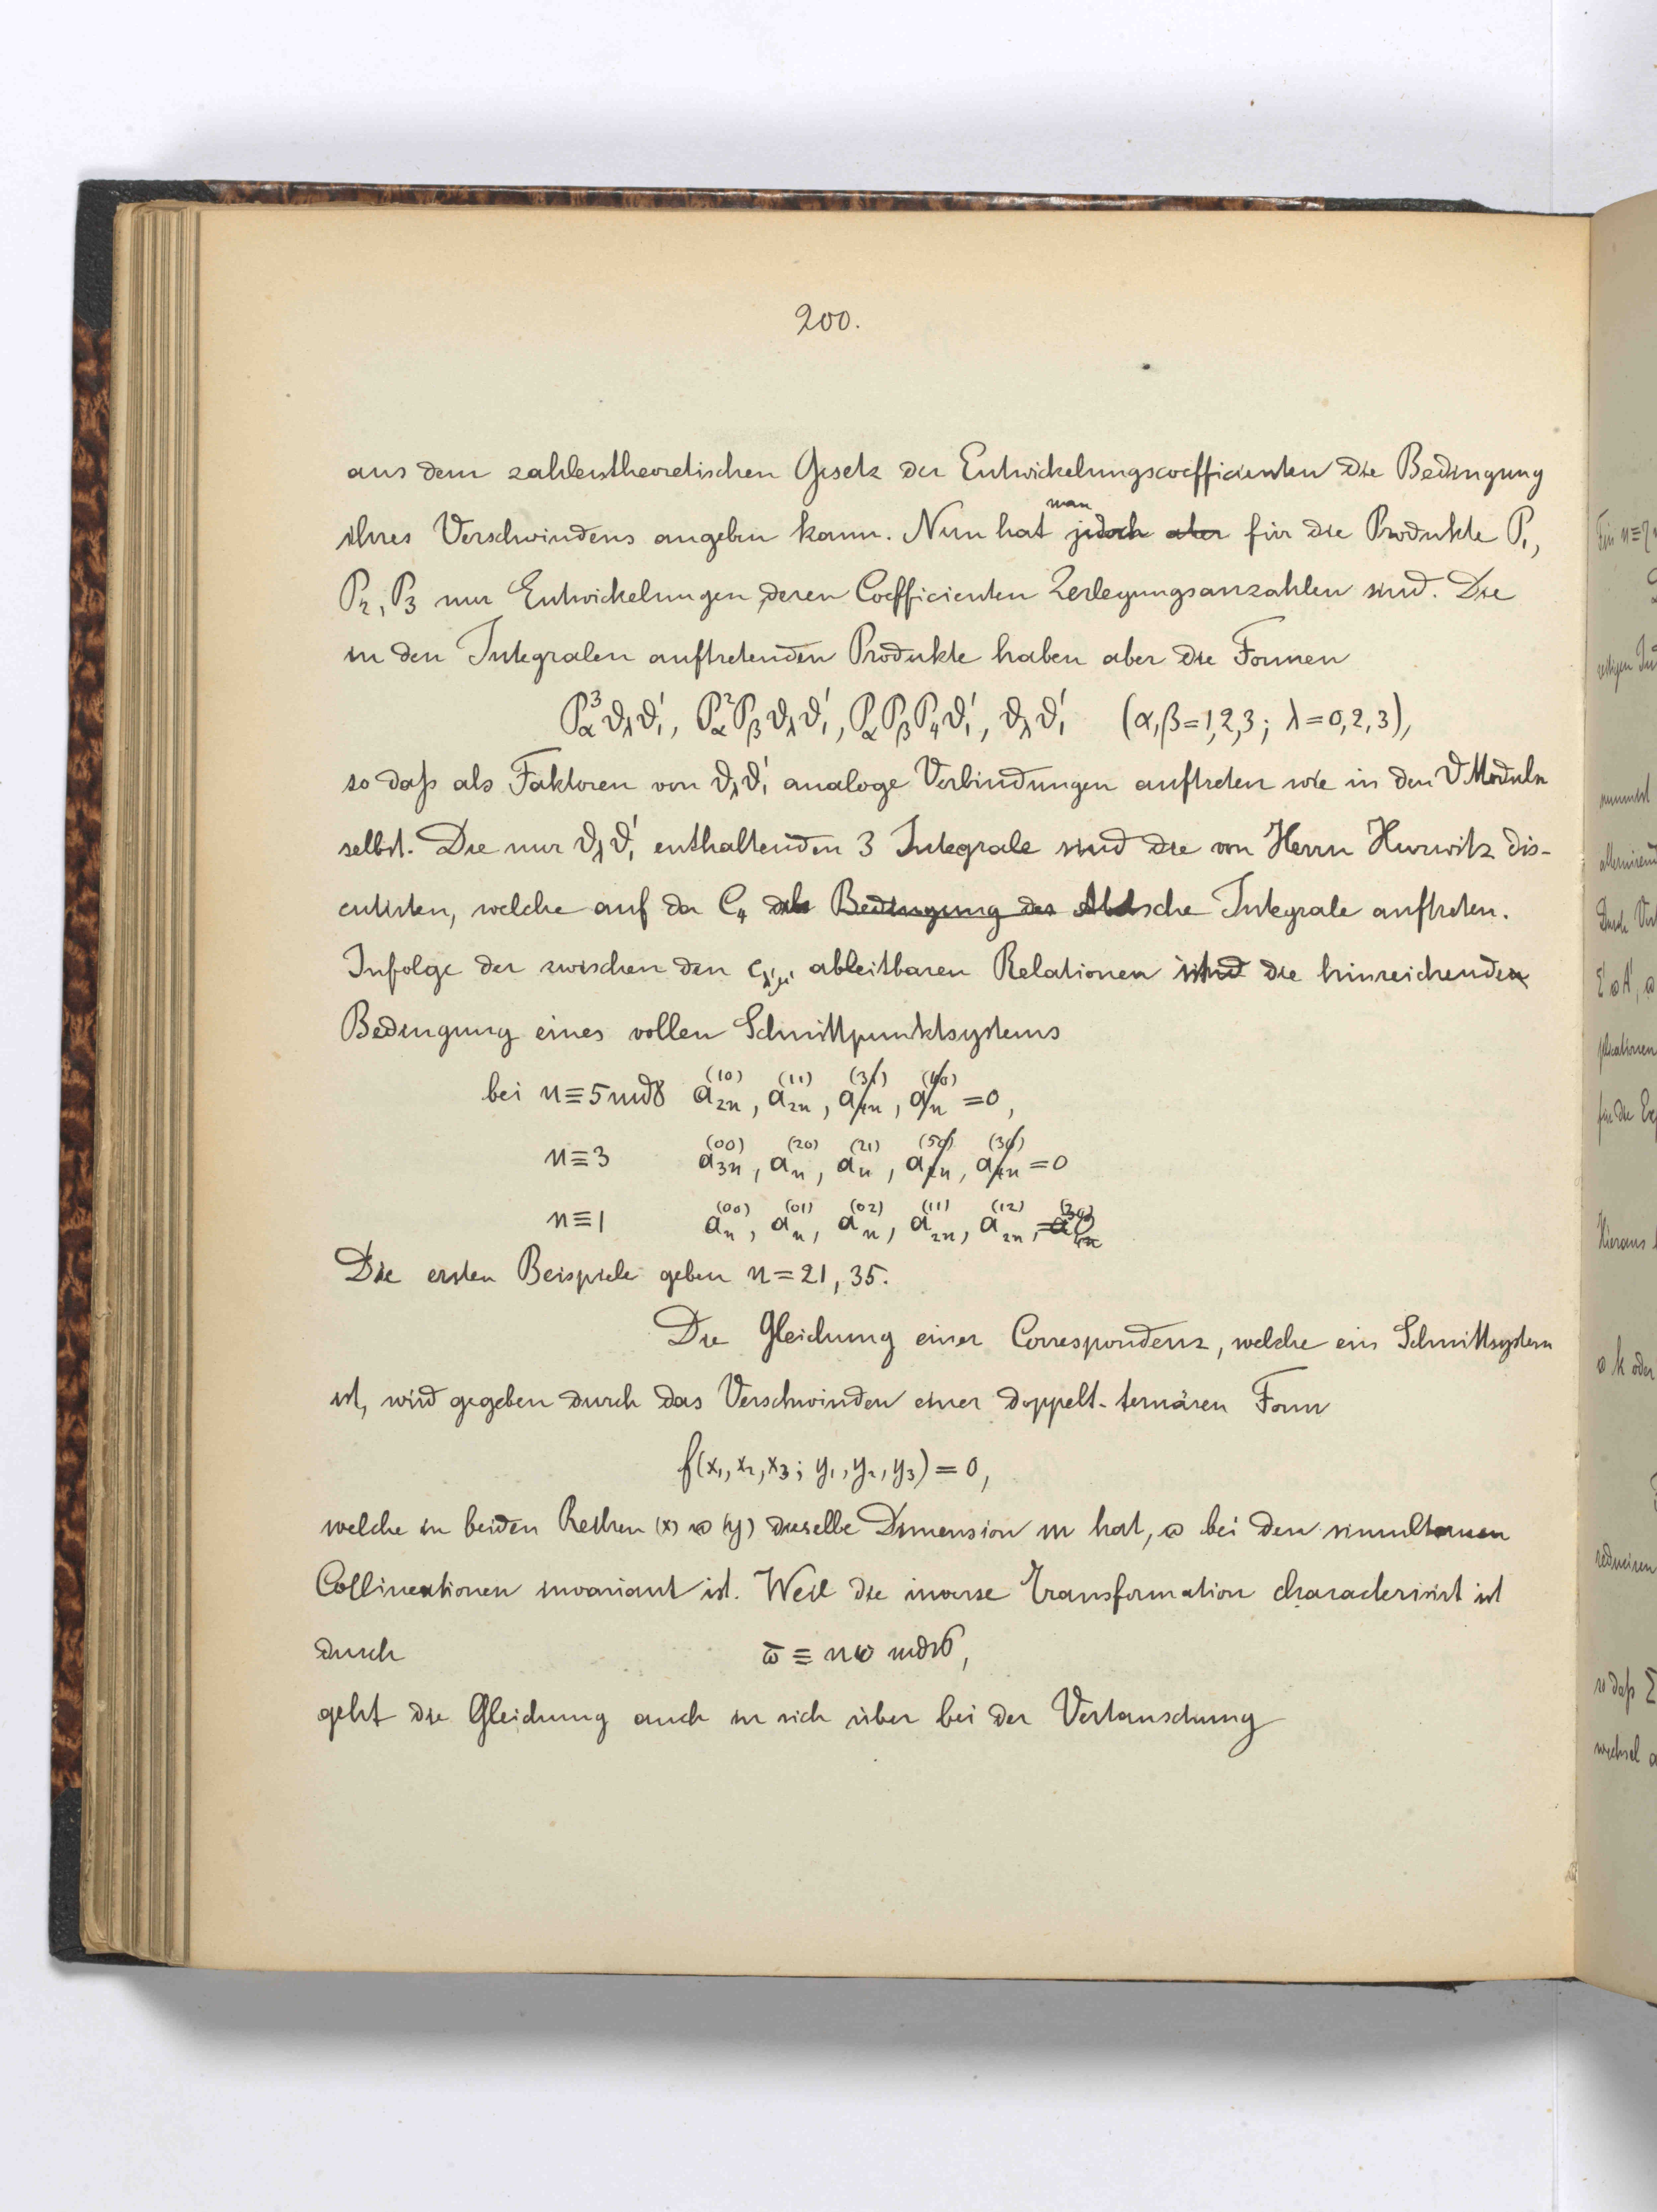 200.
aus dem zahlentheoretischen Gesetz der Entwickelungscoefficienten die Bedingung
man
ihres Verschwindens angeben kann. Nun hat jedoch aber für die Produkte P₁,
P₂, P₃ nur Entwickelungen, deren Coefficienten Zerlegungsanzahlen sind. Die
in den Integralen auftretenden Produkte haben aber die Formen
P_α³ϑ_λϑ₁', P_α²P_βϑ_λϑ₁', P_αP_βP₄ϑ₁', ϑ_λϑ₁' (α,β=1,2,3; λ=0,2,3),
so daß als Faktoren von ϑ_λϑ₁' analoge Verbindungen auftreten wie in den ϑ Moduln
selbst. Die nur ϑ_λϑ₁' enthaltenden 3 Integrale sind die von Herrn Hurwitz dis-
cutirten, welche auf der C₄ als Bedingung der Abelsche Integrale auftreten.
Infolge der zwischen den c ableitbaren Relationen sind die hinreichenden
Bedingung eines vollen Schnittpunktsystems
bei n≡5 mod 8 a₂ₙ⁽¹⁰⁾, a₂ₙ⁽¹¹⁾, a₄ₙ⁽³¹⁾, aₙ⁽⁴⁰⁾ =0,
n≡3 a₃ₙ⁽⁰⁰⁾, aₙ⁽²⁰⁾, aₙ⁽²¹⁾, a₂ₙ⁽⁵⁰⁾, a₄ₙ⁽³⁰⁾ =0
n≡1 aₙ⁽⁰⁰⁾, aₙ⁽⁰¹⁾, aₙ⁽⁰²⁾, a₂ₙ⁽¹¹⁾, a₂ₙ⁽¹²⁾, =0
Die ersten Beispiele geben n=21, 35.
Die Gleichung einer Correspondenz, welche ein Schnittsystem
ist, wird gegeben durch das Verschwinden einer doppelt-ternären Form
f(x₁, x₂, x₃; y₁, y₂, y₃) = 0,
welche in beiden Reihen (x) u (y) dieselbe Dimension m hat, u bei den simultanen
Collineationen invariant ist. Weil die inverse Transformation characterisirt ist
durch ω̄ ≡ nω mod 16,
geht die Gleichung auch in sich über bei der Vertauschung